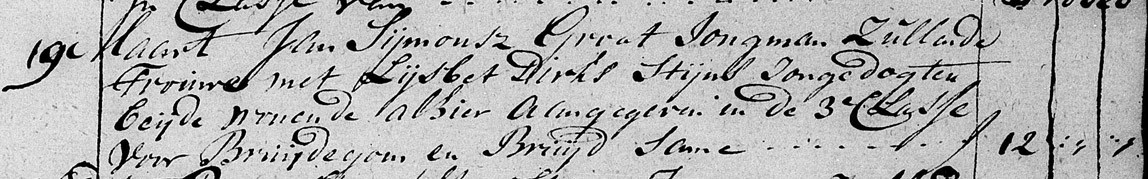 in Classe van
19e Maart Jan Sijmonsz Groot Jongman Zullende
Trouwe met Lijsbet Dirks Stijns Jongedogter
beijde wonende alhier Aangegeven in de 3e Classe
voor Bruijdegom en Bruijd Same - - - - - - - f 12 : " : "